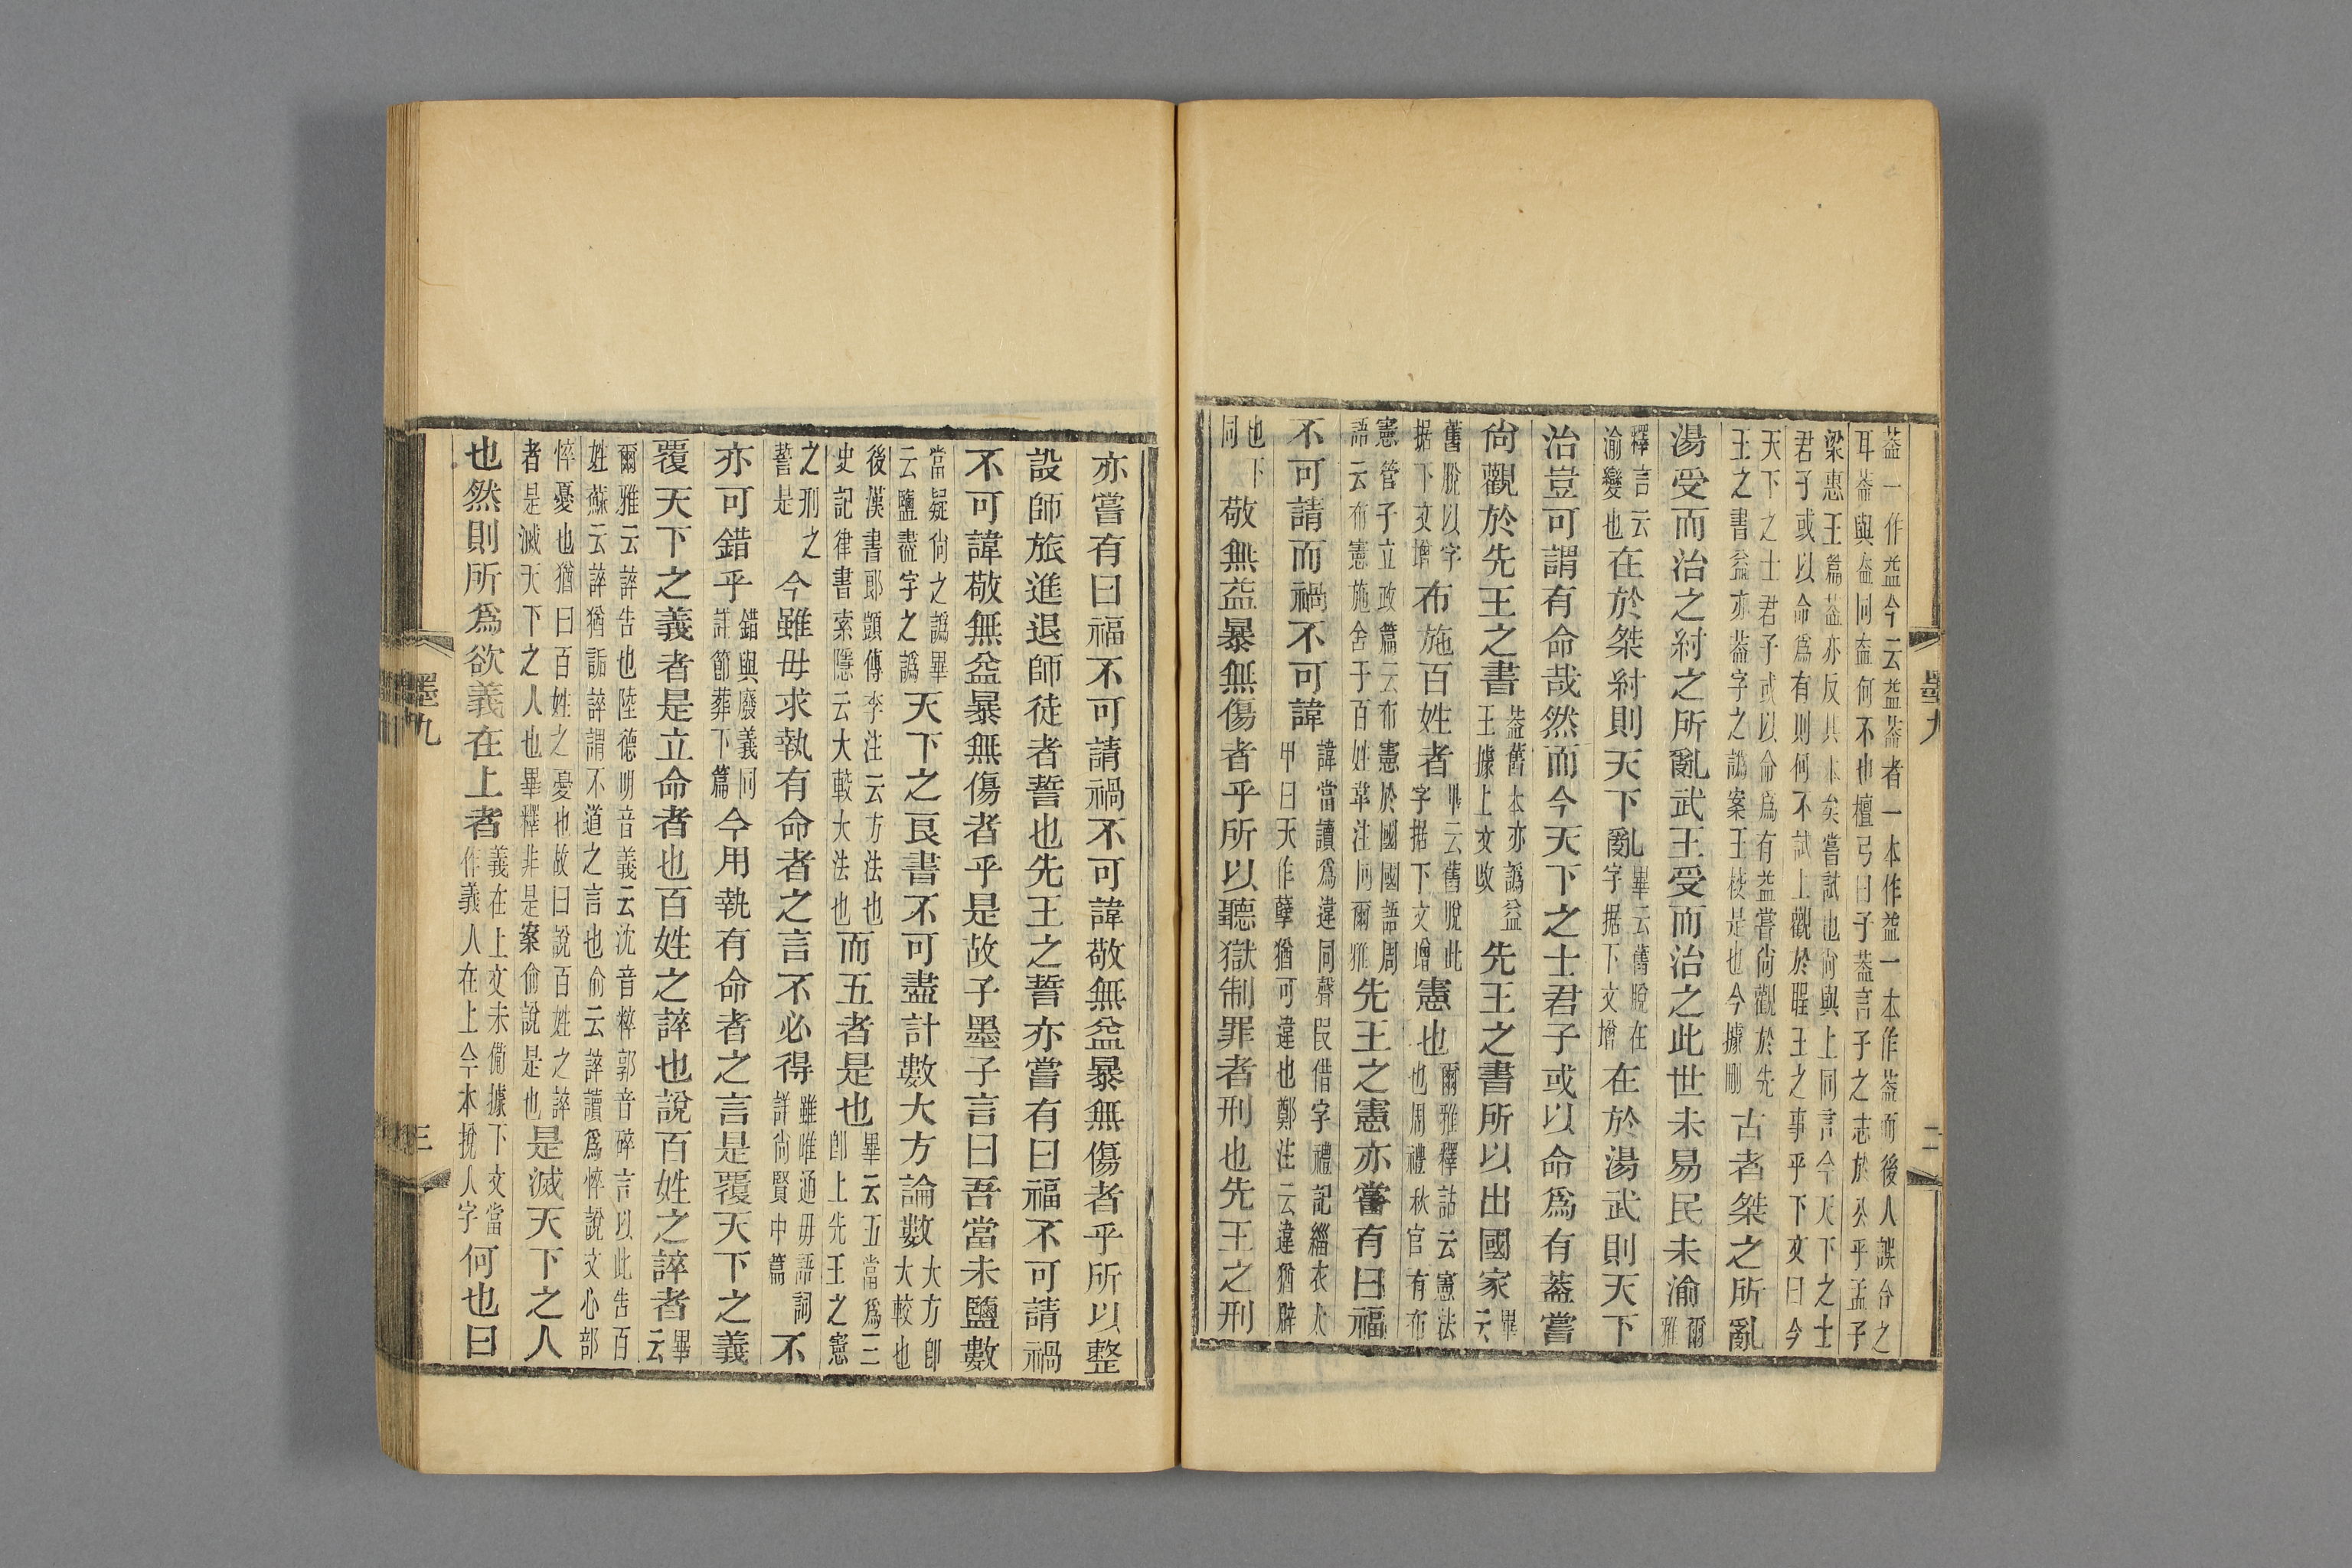 葢一作盇今云盇葢者一本作盇一本作葢而後人誤合之
耳葢與盇同盇何不也檀弓曰子葢言子之志於公乎孟子
梁惠王篇葢亦反其本矣嘗試也尙與上同言今天下之士
君子或以命爲有則何不試上觀於聖王之事乎下文曰今
天下之士君子或以命爲有益嘗尙觀於先
王之書益亦葢字之譌案王校是也今據刪
古者桀之所亂
湯受而治之紂之所亂武王受而治之此世未易民未渝爾雅
釋言云渝變也在於桀紂則天下亂畢云舊脫在字据下文增在於湯武則天下
治豈可謂有命哉然而今天下之士君子或以命爲有葢嘗
尙觀於先王之書葢舊本亦譌益王據上文改先王之書所以出國家畢云
舊脫以字据下文增布施百姓者畢云舊脫此字据下文增憲也爾雅釋詁云憲法也周禮秋官有布
憲管子立政篇云布憲於國國語周語云布憲施舍于百姓韋注同爾雅先王之憲亦嘗有曰福
不可請而禍不可諱諱當讀爲違同聲叚借字禮記緇衣大甲曰天作孽猶可違也鄭注云違猶辟
也下同敬無益暴無傷者乎所以聽獄制罪者刑也先王之刑
墨九
二
亦嘗有曰福不可請禍不可諱敬無益暴無傷者乎所以整
設師旅進退師徒者誓也先王之誓亦嘗有曰福不可請禍
不可諱敬無益暴無傷者乎是故子墨子言曰吾當未鹽數
當疑尙之譌畢云鹽盡字之譌天下之良書不可盡計數大方論數大方卽大較也
後漢書郎顗傳李注云方法也史記律書索隱云大較大法也而五者是也畢云五當爲三卽上先王之憲
之刑之誓是今雖毋求執有命者之言不必得雖唯通毋語詞詳尙賢中篇不
亦可錯乎錯與廢義同詳節葬下篇今用執有命者之言是覆天下之義
覆天下之義者是立命者也百姓之誶也說百姓之誶者畢云
爾雅云誶告也陸德明音義云沈音粹郭音碎言以此告百
姓蘇云誶猶詬誶謂不道之言也俞云誶讀爲悴說文心部
悴憂也猶曰百姓之憂也故曰說百姓之誶
者是滅天下之人也畢釋非是案俞說是也
是滅天下之人
也然則所爲欲義在上者義在上文未備據下文當作義人在上今本挩人字何也曰
墨九
三